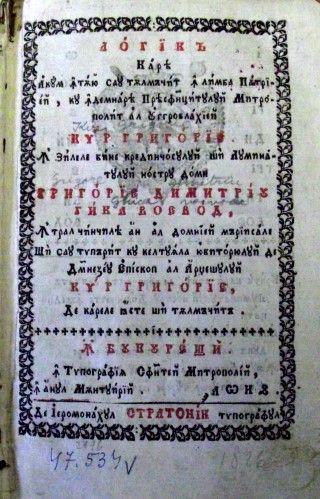 ЛО́ГІКЪ
Карѣ
Акꙋм ꙟтѫю сау тѫлмъчит ꙟ лимба Патрі
ей, кꙋ ꙟдемнарѣ Прѣсфинцитꙋлꙋй Митро
полит ал Оунгровлахіей
КѴ́Р ГРИГО́РІЕ.
Ꙟ Зилеле бине крединчосꙋлꙋй ши Лꙋмина
тꙋлꙋй нострꙋ До́мн
ГРИГО́РІЕ ДИМИ́ТРІꙊ
ГИ́КА ВОЕВО́Д,
Ꙟтрал чинчилѣ ан ал домнїей мърїисале
Ши сау типърит кꙋ келтꙋяла юбиторюлꙋй де
Дмнезеꙋ Епископ ал Арџешꙋлꙋй
КѴ́Р ГРИГО́РІЕ,
Де кареле ꙗсте ши тѫлмъчитъ.
Ꙟ БꙊКꙊРЕ́ЩЙ.
ꙟ Типографїѧ Сфинтей Митрополїй,
ꙟ анꙋл Мѫнтꙋирїй. ҂аѡкѕ.
Де Іеромонахꙋл СТРАТОНИК типографꙋл
47.534 V